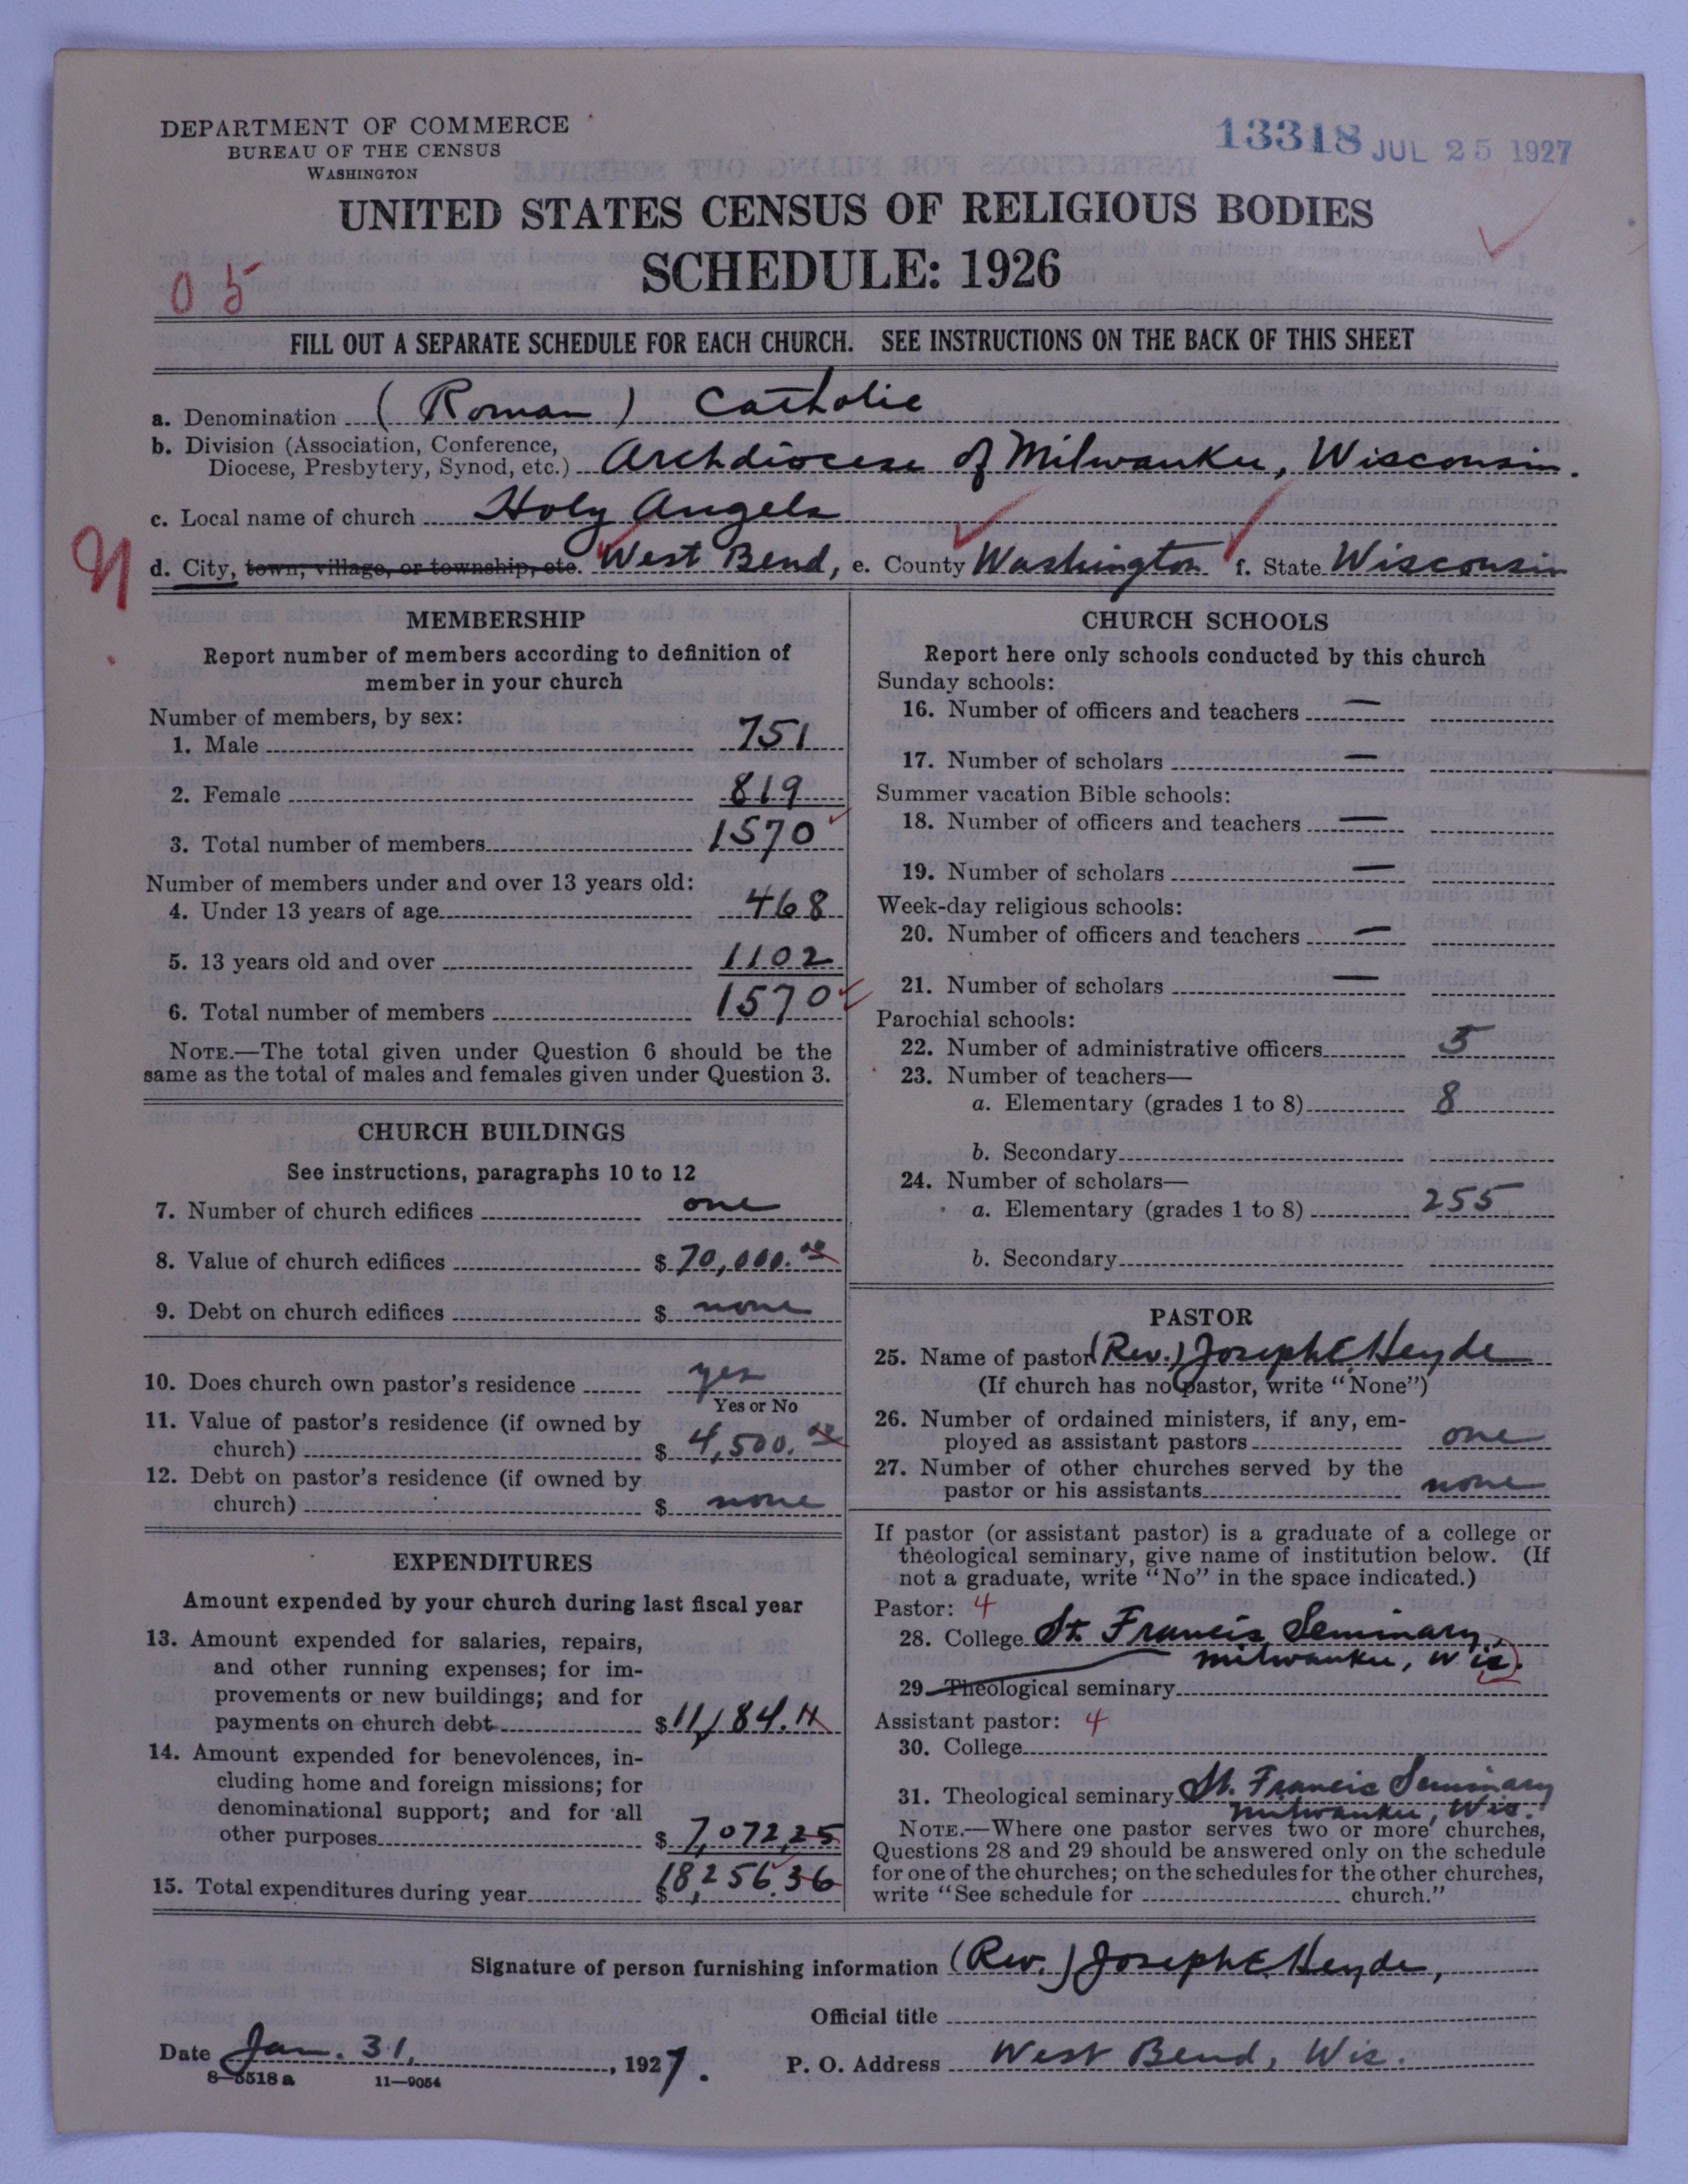 DEPARTMENT OF COMMERCE
BUREAU OF THE CENSUS
WASHINGTON
13318 JUL 25 1927
UNITED STATES CENSUS OF RELIGIOUS BODIES
SCHEDULE: 1926
05
FILL OUT A SEPARATE SCHEDULE FOR EACH CHURCH. SEE INSTRUCTIONS ON THE BACK OF THIS SHEET
a. Denomination (Roman) Catholic
b. Division (Association, Conference,
Diocese, Presbytery, Synod, etc.) Archdiocese of Milwaukee, Wisconsin.
c. Local name of church Holy Angels
d. City, town, village, or township, etc. West Bend, e. County Washington f. State Wisconsin
MEMBERSHIP
Report number of members according to definition of
member in your church
Number of members, by sex:
1. Male 751
2. Female 819
3. Total number of members 1570
Number of members under and over 13 years old:
4. Under 13 years of age 468
5. 13 years old and over 1102
6. Total number of members 1570
NOTE.—The total given under Question 6 should be the
same as the total of males and females given under Question 3.
CHURCH BUILDINGS
See instructions, paragraphs 10 to 12
7. Number of church edifices one
8. Value of church edifices $ 70,000.00
9. Debt on church edifices $ none
10. Does church own pastor's residence yes
Yes or No
11. Value of pastor's residence (if owned by
church) $ 4,500.00
12. Debt on pastor's residence (if owned by
church) $ none
EXPENDITURES
Amount expended by your church during last fiscal year
13. Amount expended for salaries, repairs,
and other running expenses; for im-
provements or new buildings; and for
payments on church debt $ 11,184.11
14. Amount expended for benevolences, in-
cluding home and foreign missions; for
denominational support; and for all
other purposes $ 7,072.25
15. Total expenditures during year $ 18,256.36
CHURCH SCHOOLS
Report here only schools conducted by this church
Sunday schools:
16. Number of officers and teachers —
17. Number of scholars —
Summer vacation Bible schools:
18. Number of officers and teachers —
19. Number of scholars —
Week-day religious schools:
20. Number of officers and teachers —
21. Number of scholars —
Parochial schools:
22. Number of administrative officers 5
23. Number of teachers—
a. Elementary (grades 1 to 8) 8
b. Secondary
24. Number of scholars—
a. Elementary (grades 1 to 8) 255
b. Secondary
PASTOR
25. Name of pastor (Rev.) Joseph E. Heyde
(If church has no pastor, write "None")
26. Number of ordained ministers, if any, em-
ployed as assistant pastors one
27. Number of other churches served by the
pastor or his assistants none
If pastor (or assistant pastor) is a graduate of a college or
theological seminary, give name of institution below. (If
not a graduate, write "No" in the space indicated.)
Pastor: 4
28. College St. Francis Seminary,
Milwaukee, Wis.
29 Theological seminary
Assistant pastor: 4
30. College
31. Theological seminary St. Francis Seminary
Milwaukee, Wis.
NOTE.—Where one pastor serves two or more churches,
Questions 28 and 29 should be answered only on the schedule
for one of the churches; on the schedules for the other churches,
write "See schedule for church."
Signature of person furnishing information (Rev.) Joseph E. Heyde,
Official title
Date Jan. 31, 1927. P. O. Address West Bend, Wis.
8—5518a 11—9054